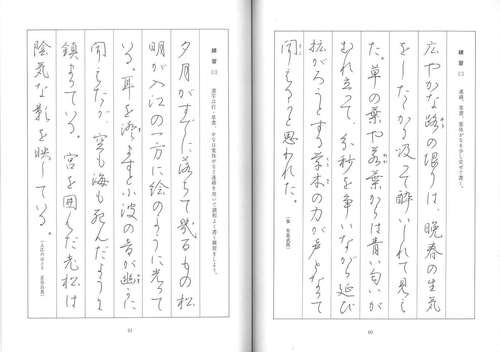 練習(二) 連綿、草書、変体がなを少し交ぜて書く。
広やかな路の限りは、晩春の生気
をしたたか吸って酔いしれて見え
た。草の葉や若葉からは青い匂いが
むれ立って、分秒を争いながら延び
拡がろうとする草木の力が声となって
聞えるかと思われた。
(春 有島武郎)
60
練習(三) 漢字は行・草書、かなは変体がなと連綿を用いて調和よく書く練習をしよう。
夕月がすでに落ちて幾つもの松
明が入江の一方に絵のように光って
いる。耳を澄ますと小波の音が幽かに
聞えたが、空も海も死んだように
鎮まっている。宮を囲んだ老松は
陰気な影を映している。
正宗白鳥)
61